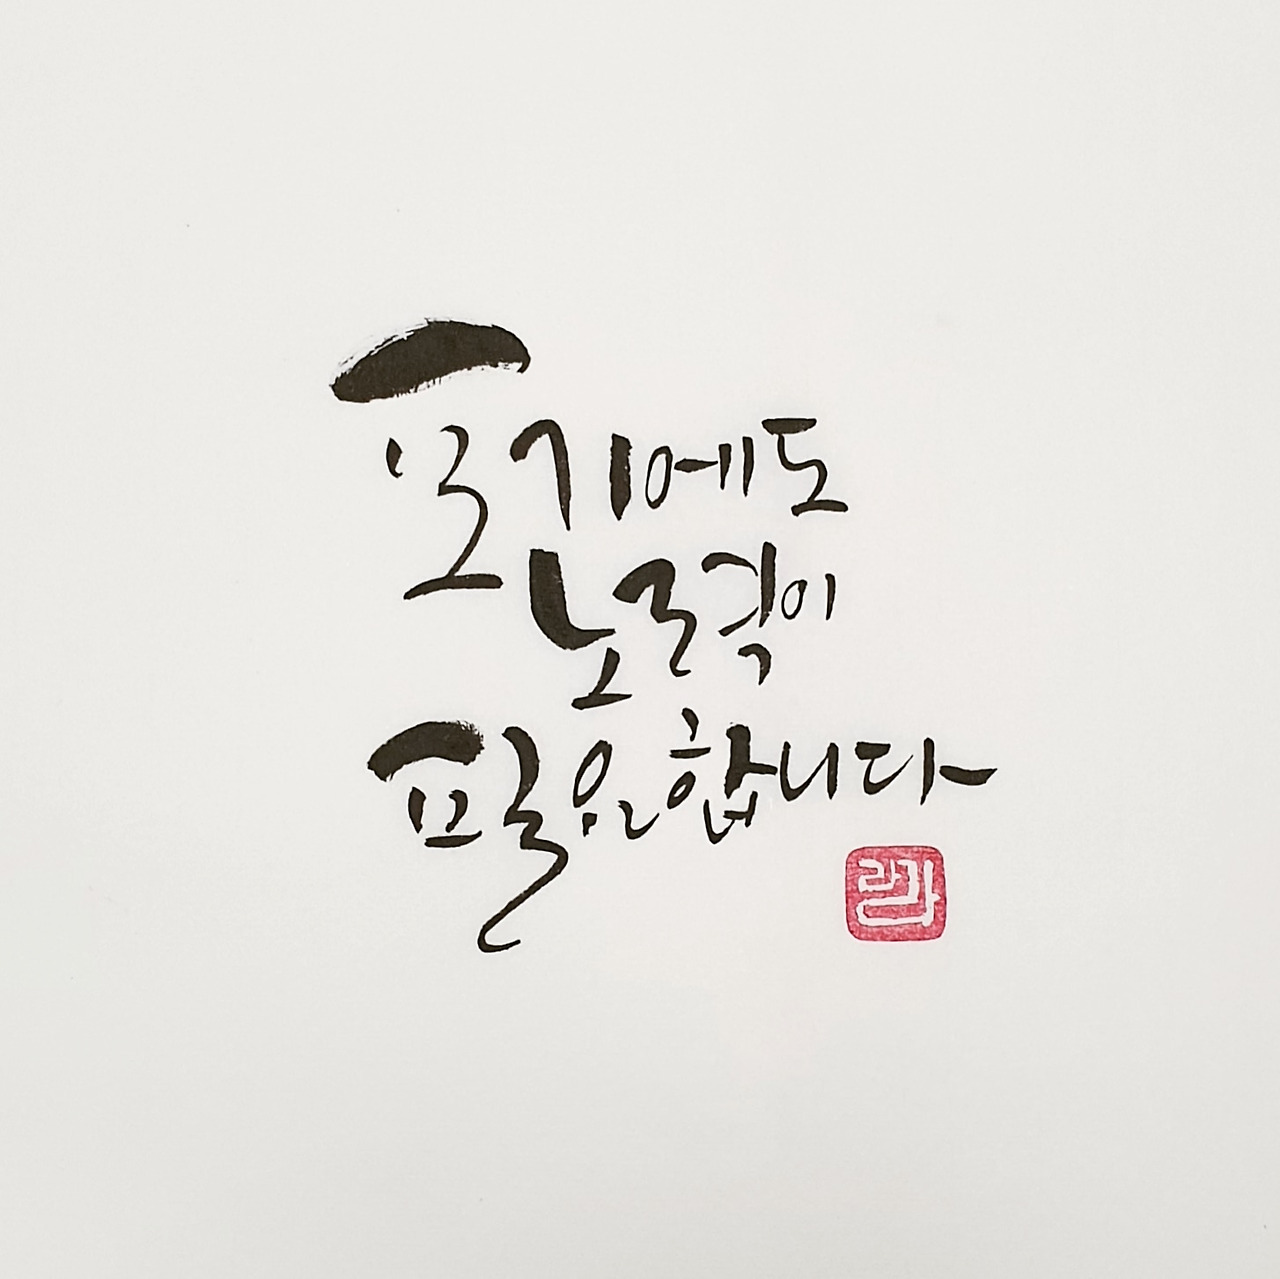 포기에도
노력이
필요합니다